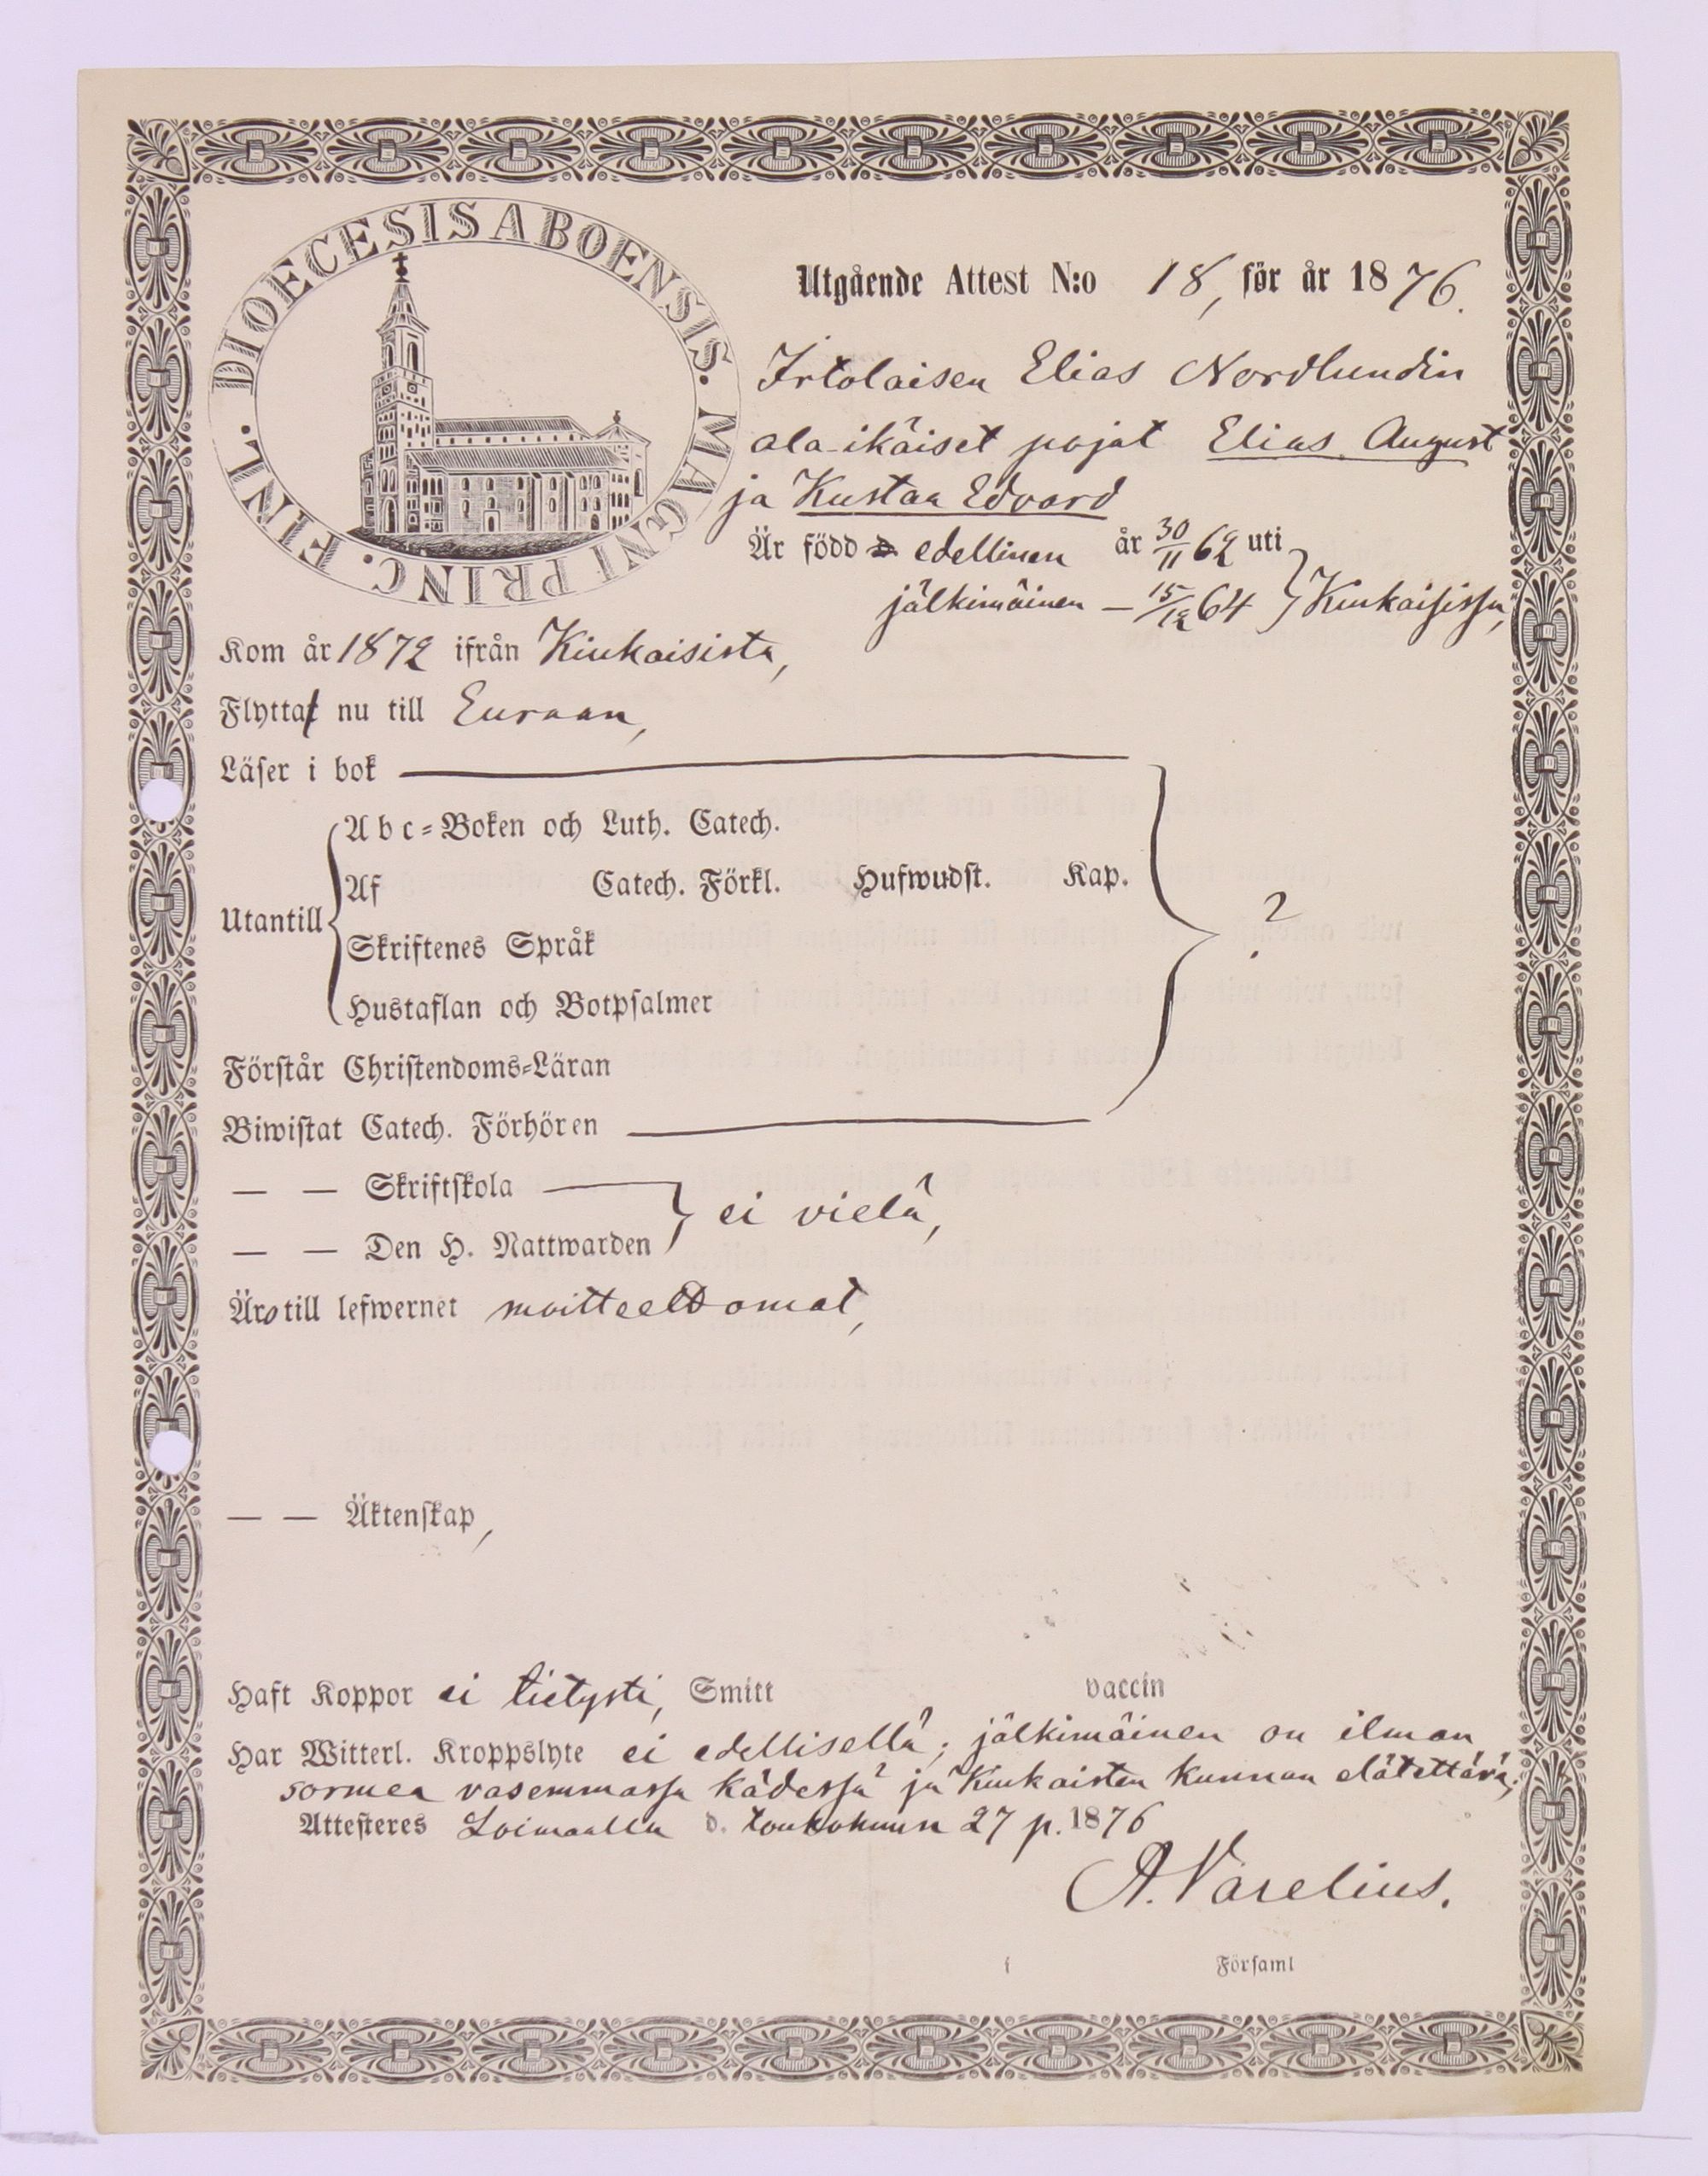 DIOECESIS ABOENSIS. MAGNI PRINC. FINL.
Utgående Attest N:o 18, för år 1876.
Irtolaisen Elias Nordlundin
ala-ikäiset pojat Elias August
ja Kustaa Edvard
Är född edellinen år 30/11 62 uti
jälkimäinen — 15/12 64 } Kiukaisissa,
Kom år 1872 ifrån Kiukaisista,
Flytta nu till Euraan,
Läser i bok
Abc-Boken och Luth. Catech.
Af Catech. Förkl. Hufwudst. Kap.
Utantill ?
Skriftenes Språk
Hustaflan och Botpsalmer
Förstår Christendoms-Läran
Biwistat Catech. Förhören
— — Skriftskola
ei vielä,
— — Den H. Nattwarden
Äro till lefwernet moitteettomat,
— — Äktenskap,
Haft Koppor ei tietysti, Smitt vaccin
Har Witterl. Kroppslyte ei edellisellä; jälkimäinen on ilman
sormea vasemmassa kädessä ja Kiukaisten kunnan elätettävä;
Attesteres Loimaalla d. toukokuun 27 p. 1876
A. Varelius.
i Församl